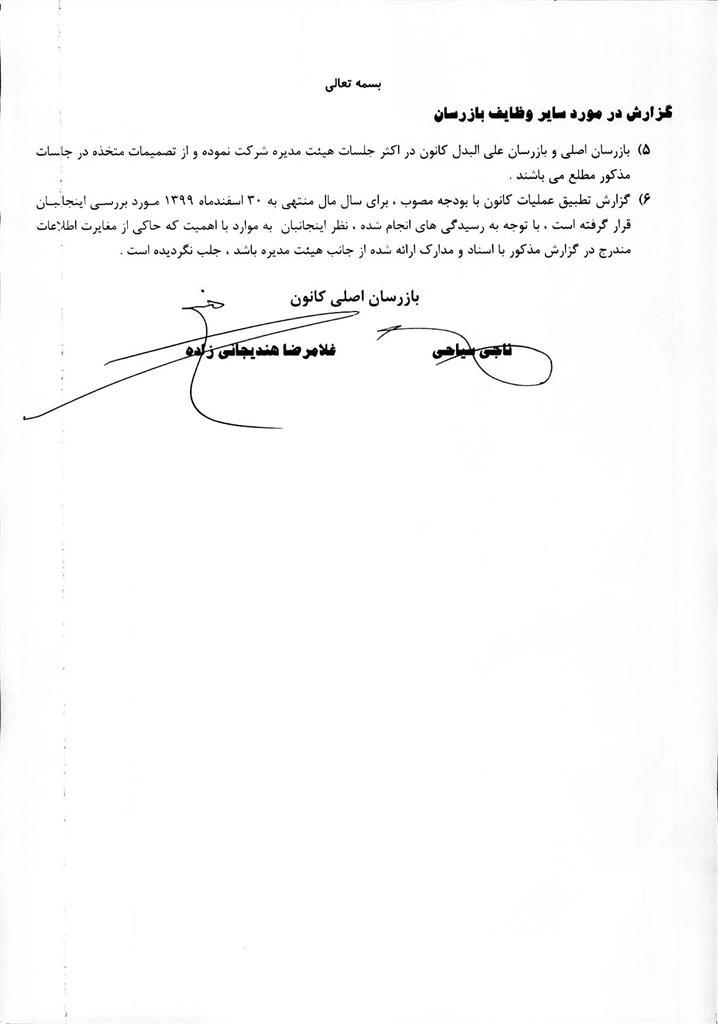 بسمه تعالی
گزارش در مورد سایر وظایف بازرسان
۵) بازرسان اصلی و بازرسان علی البدل کانون در اکثر جلسات هیئت مدیره شرکت نموده و از تصمیمات متخذه در جلسات
مذکور مطلع می باشند .
۶) گزارش تطبیق عملیات کانون با بودجه مصوب ، برای سال مال منتهی به ۳۰ اسفندماه ۱۳۹۹ مورد بررسی اینجانبان
قرار گرفته است ، با توجه به رسیدگی های انجام شده ، نظر اینجانبان به موارد با اهمیت که حاکی از مغایرت اطلاعات
مندرج در گزارش مذکور با اسناد و مدارک ارائه شده از جانب هیئت مدیره باشد ، جلب نگردیده است .
بازرسان اصلی کانون
ناجی سیاحی غلامرضا هندیجانی زاده